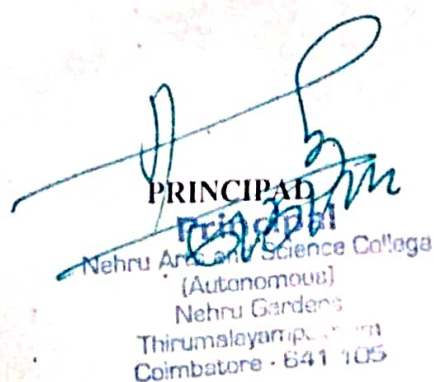 PRINCIPAL
Principal
Nehru Arts and Science College
(Autonomous)
Nehru Gardens
Coimbatore - 641 105